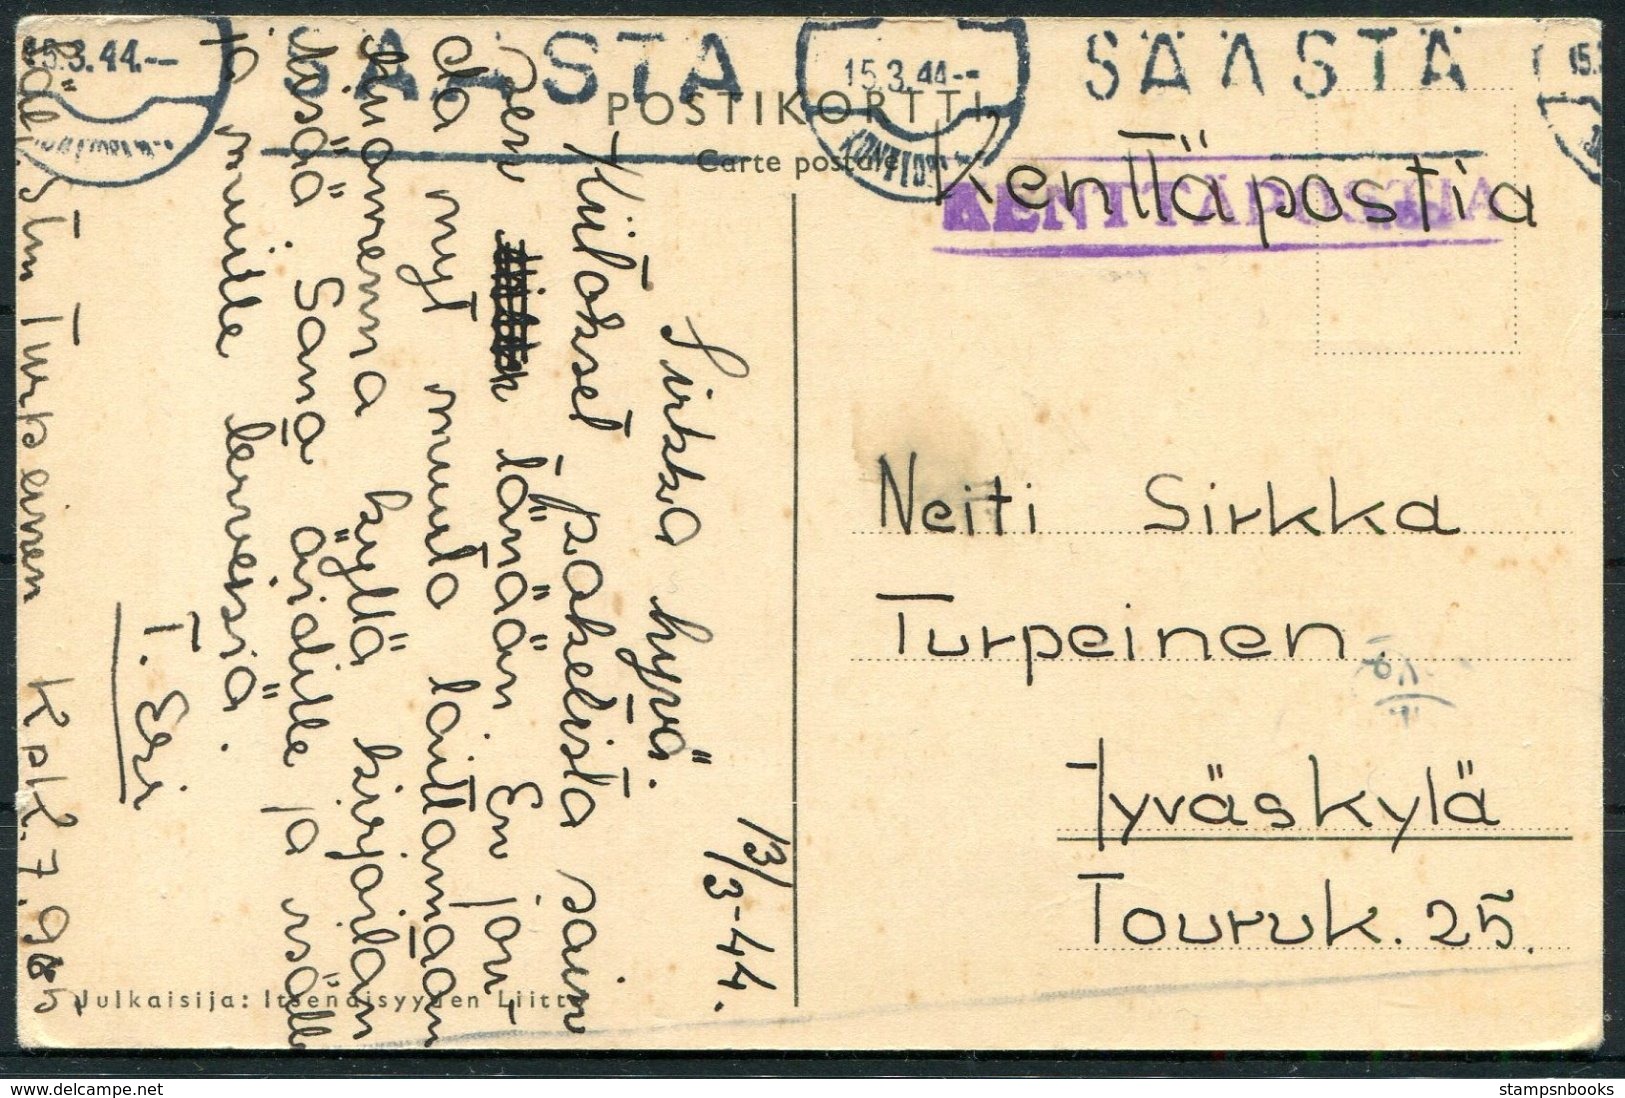 15.3.44.--
SÄÄSTÄ
15.3.44--
SÄÄSTÄ
15.
POSTIKORTTI
Carte postale
Kenttäpostia
KENTTÄPOSTIA
Neiti Sirkka
Turpeinen
Jyväskylä
Touruk. 25.
13/3-44.
Sirkka hyvä.
Kiitokset paketista sain
sen tänään. En jou-
da nyt muuta laittamaan
huomenna kyllä kirjoitan
lisää. Sano äidille ja isälle
ja muille terveisiä.
T. Eri
Stm Turpeinen KpK. 7.
Julkaisija: Itsenäisyyden Liitto
stampsnbooks
www.delcampe.net